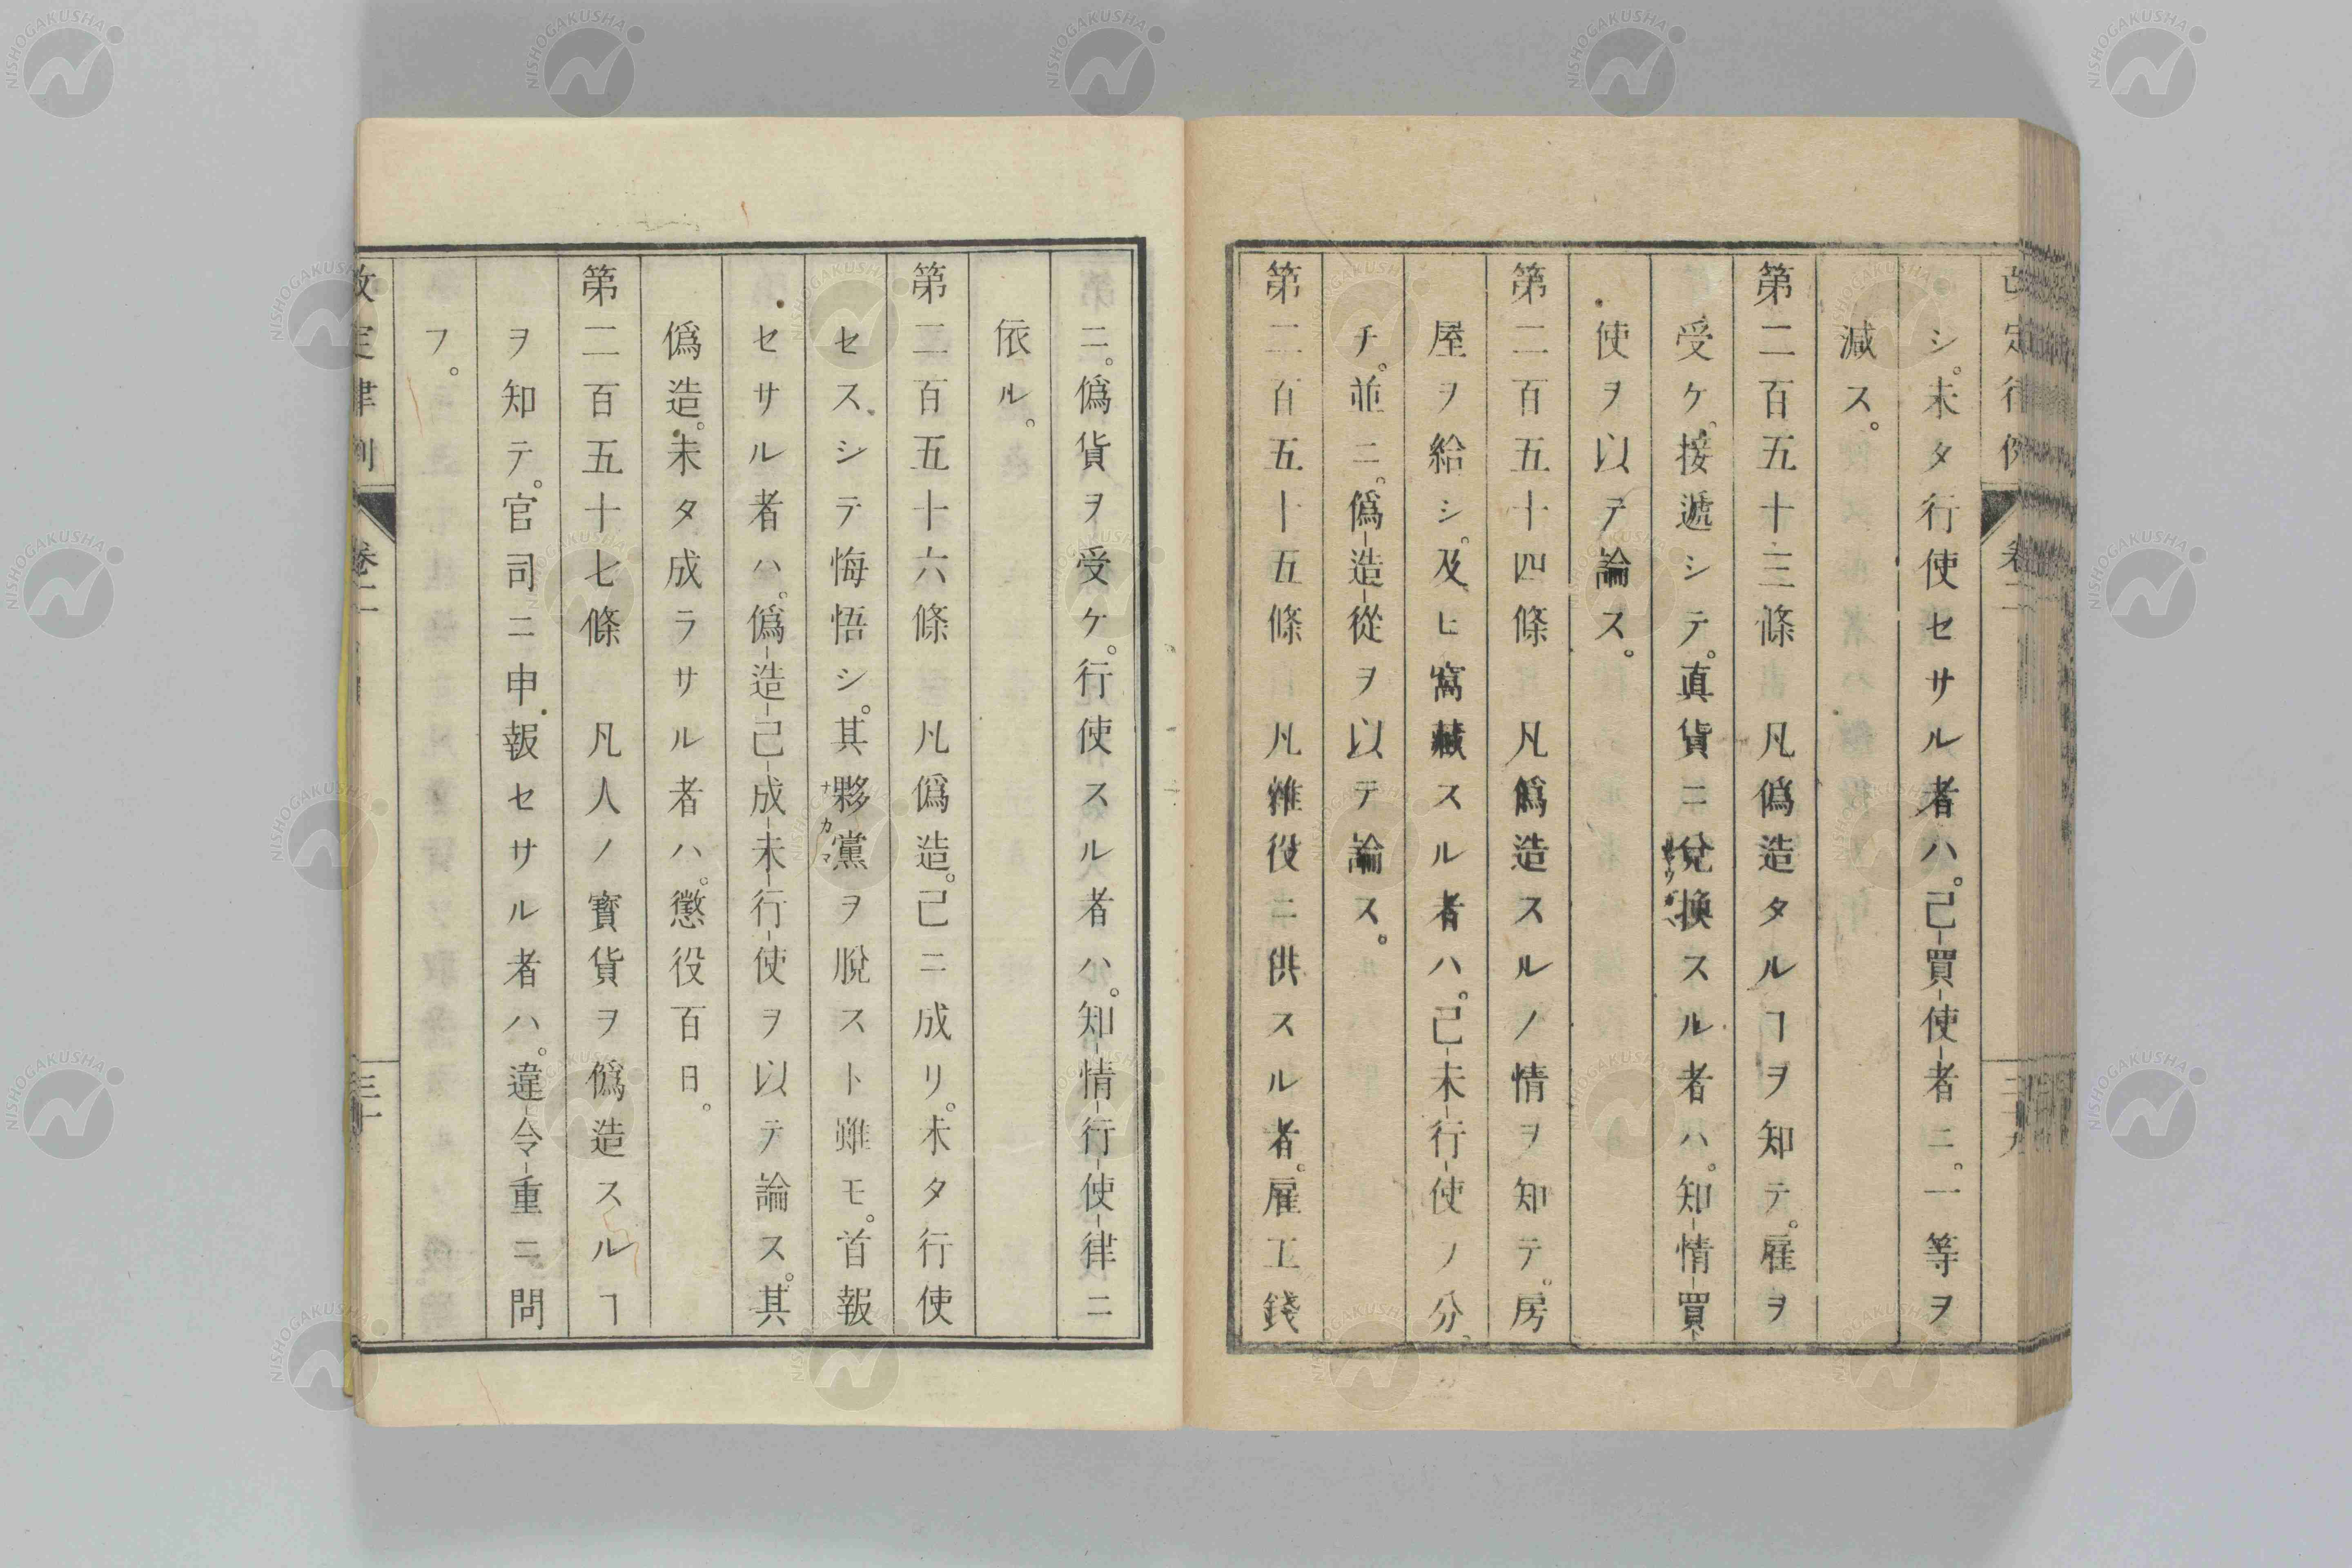 シ。未タ行使セサル者ハ。己買使者ニ。一等ヲ
減ス。
第二百五十三條 凡偽造タルヿヲ知テ。雇ヲ
受ケ。接遞シテ。真貨ニ兌換スル者ハ。知情買
使ヲ以テ論ス。
第二百五十四條 凡偽造スルノ情ヲ知テ。房
屋ヲ給シ。及ヒ窩藏スル者ハ。己未行使ノ分
チ。並ニ。偽造從ヲ以テ論ス。
第二百五十五條 凡雜役ニ供スル者。雇工錢
ニ。偽貨ヲ受ケ。行使スル者ハ。知情行使律ニ
依ル。
第二百五十六條 凡偽造。己ニ成リ。未タ行使
セス。シテ悔悟シ。其夥黨ヲ脫スト雖モ。首報
ナカマ
セサル者ハ。偽造己成未行使ヲ以テ論ス。其
偽造。未タ成ラサル者ハ。懲役百日。
第二百五十七條 凡人ノ寳貨ヲ偽造スルヿ
ヲ知テ。官司ニ申報セサル者ハ。違令重ニ問
フ。
改定律例 卷二 三十
NISHOGAKUSHA